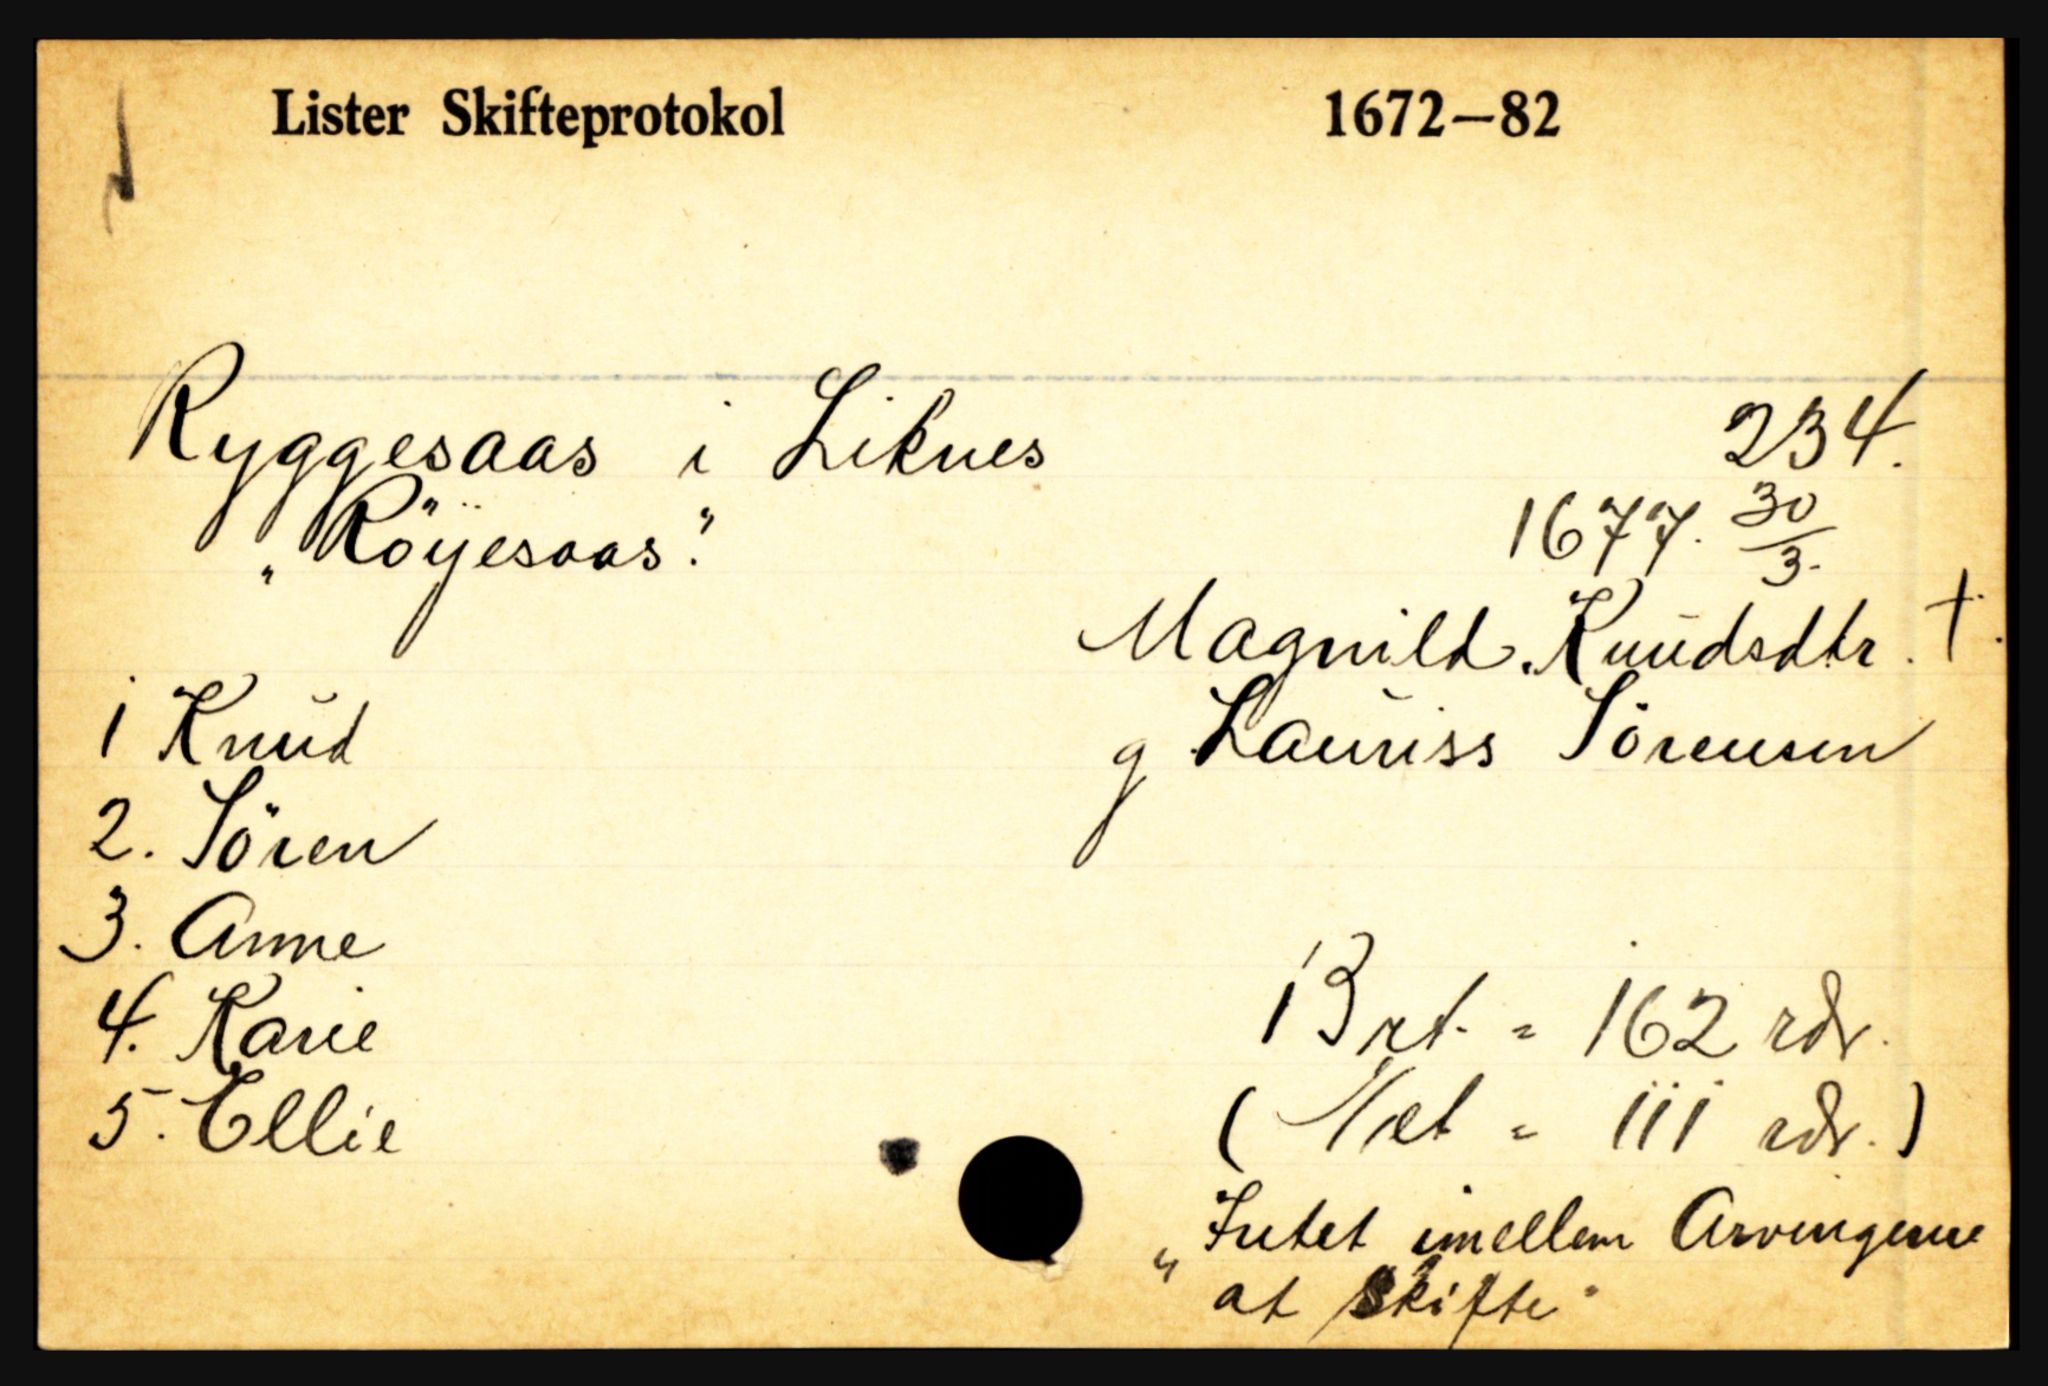 Lister Skifteprotokol 1672—82
Ryggesaas i Liknes 234.
„Röyesaas." 1677. 30/3.
Magnild Knudsdtr. †.
1 Knud g Lauriss Sörensen
2. Sören
3. Anne
4. Karie Brt. = 162 rdr.
5. Ellie ( Net = 111 rdr. )
„Intet imellem Arvingerne
at Skifte"